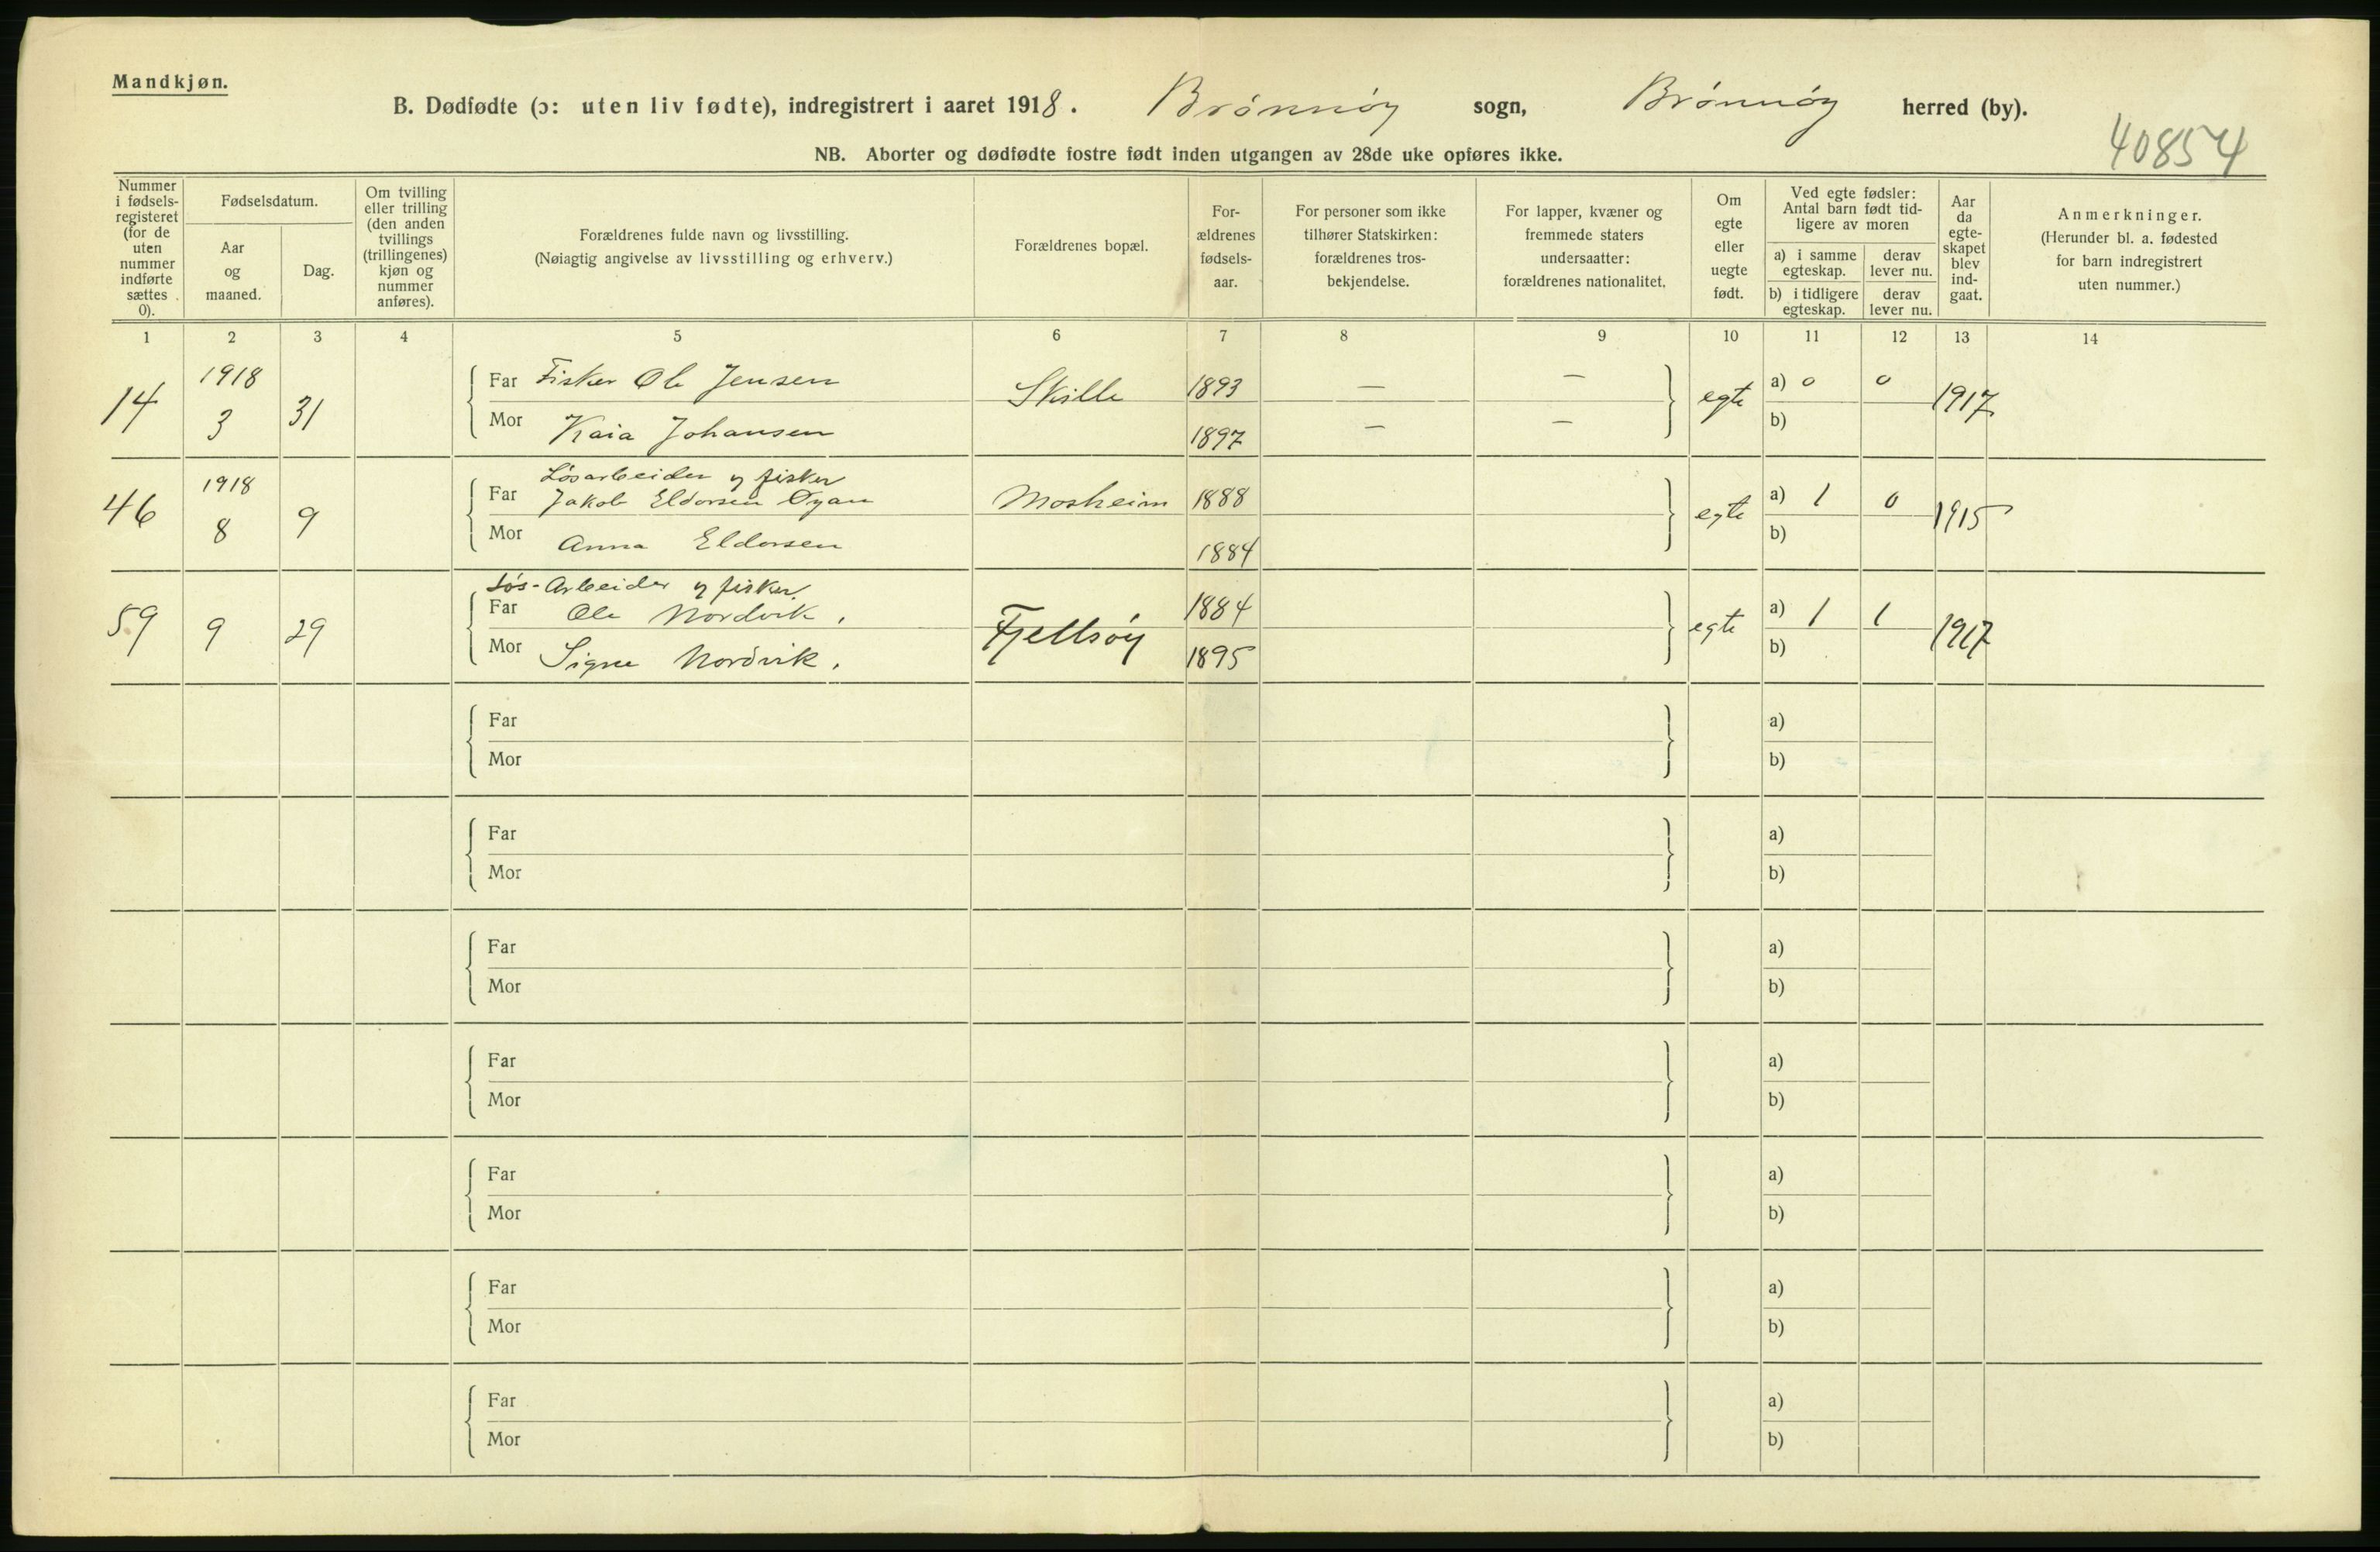 Mandkjøn.
B. Dødfødte (ɔ: uten liv fødte), indregistrert i aaret 1918. Brønnøy sogn, Brønnøy herred (by).
40854
NB. Aborter og dødfødte fostre født inden utgangen av 28de uke opføres ikke.
Nummer i fødsels-registeret (for de uten nummer indførte sættes 0).
Fødselsdatum.
Aar og maaned.
Dag.
Om tvilling eller trilling (den anden tvillings (trillingenes) kjøn og nummer anføres).
Forældrenes fulde navn og livsstilling.
(Nøiagtig angivelse av livsstilling og erhverv.)
Forældrenes bopæl.
For-ældrenes fødsels-aar.
For personer som ikke tilhører Statskirken: forældrenes tros-bekjendelse.
For lapper, kvæner og fremmede staters undersaatter: forældrenes nationalitet.
Om egte eller uegte født.
Ved egte fødsler: Antal barn født tid-ligere av moren
a) i samme egteskap.
derav lever nu.
b) i tidligere egteskap.
derav lever nu.
Aar da egte-skapet blev ind-gaat.
Anmerkninger.
(Herunder bl. a. fødested for barn indregistrert uten nummer.)
1 2 3 4 5 6 7 8 9 10 11 12 13 14
14 1918 3 31 Far Fisker Ole Jensen Skille 1893 — — egte a) 0 0 1917
Mor Kaia Johansen 1897 — — b)
Løsarbeider og fisker
46 1918 8 9 Far Jakob Eldorsen Øyan Mosheim 1888 egte a) 1 0 1915
Mor Anna Eldorsen 1884 b)
Løs-Arbeider og fisker.
59 9 29 Far Ole Nordvik, Fjellsøy 1884 egte a) 1 1 1917
Mor Signe Nordvik, 1895 b)
Far a)
Mor b)
Far a)
Mor b)
Far a)
Mor b)
Far a)
Mor b)
Far a)
Mor b)
Far a)
Mor b)
Far a)
Mor b)